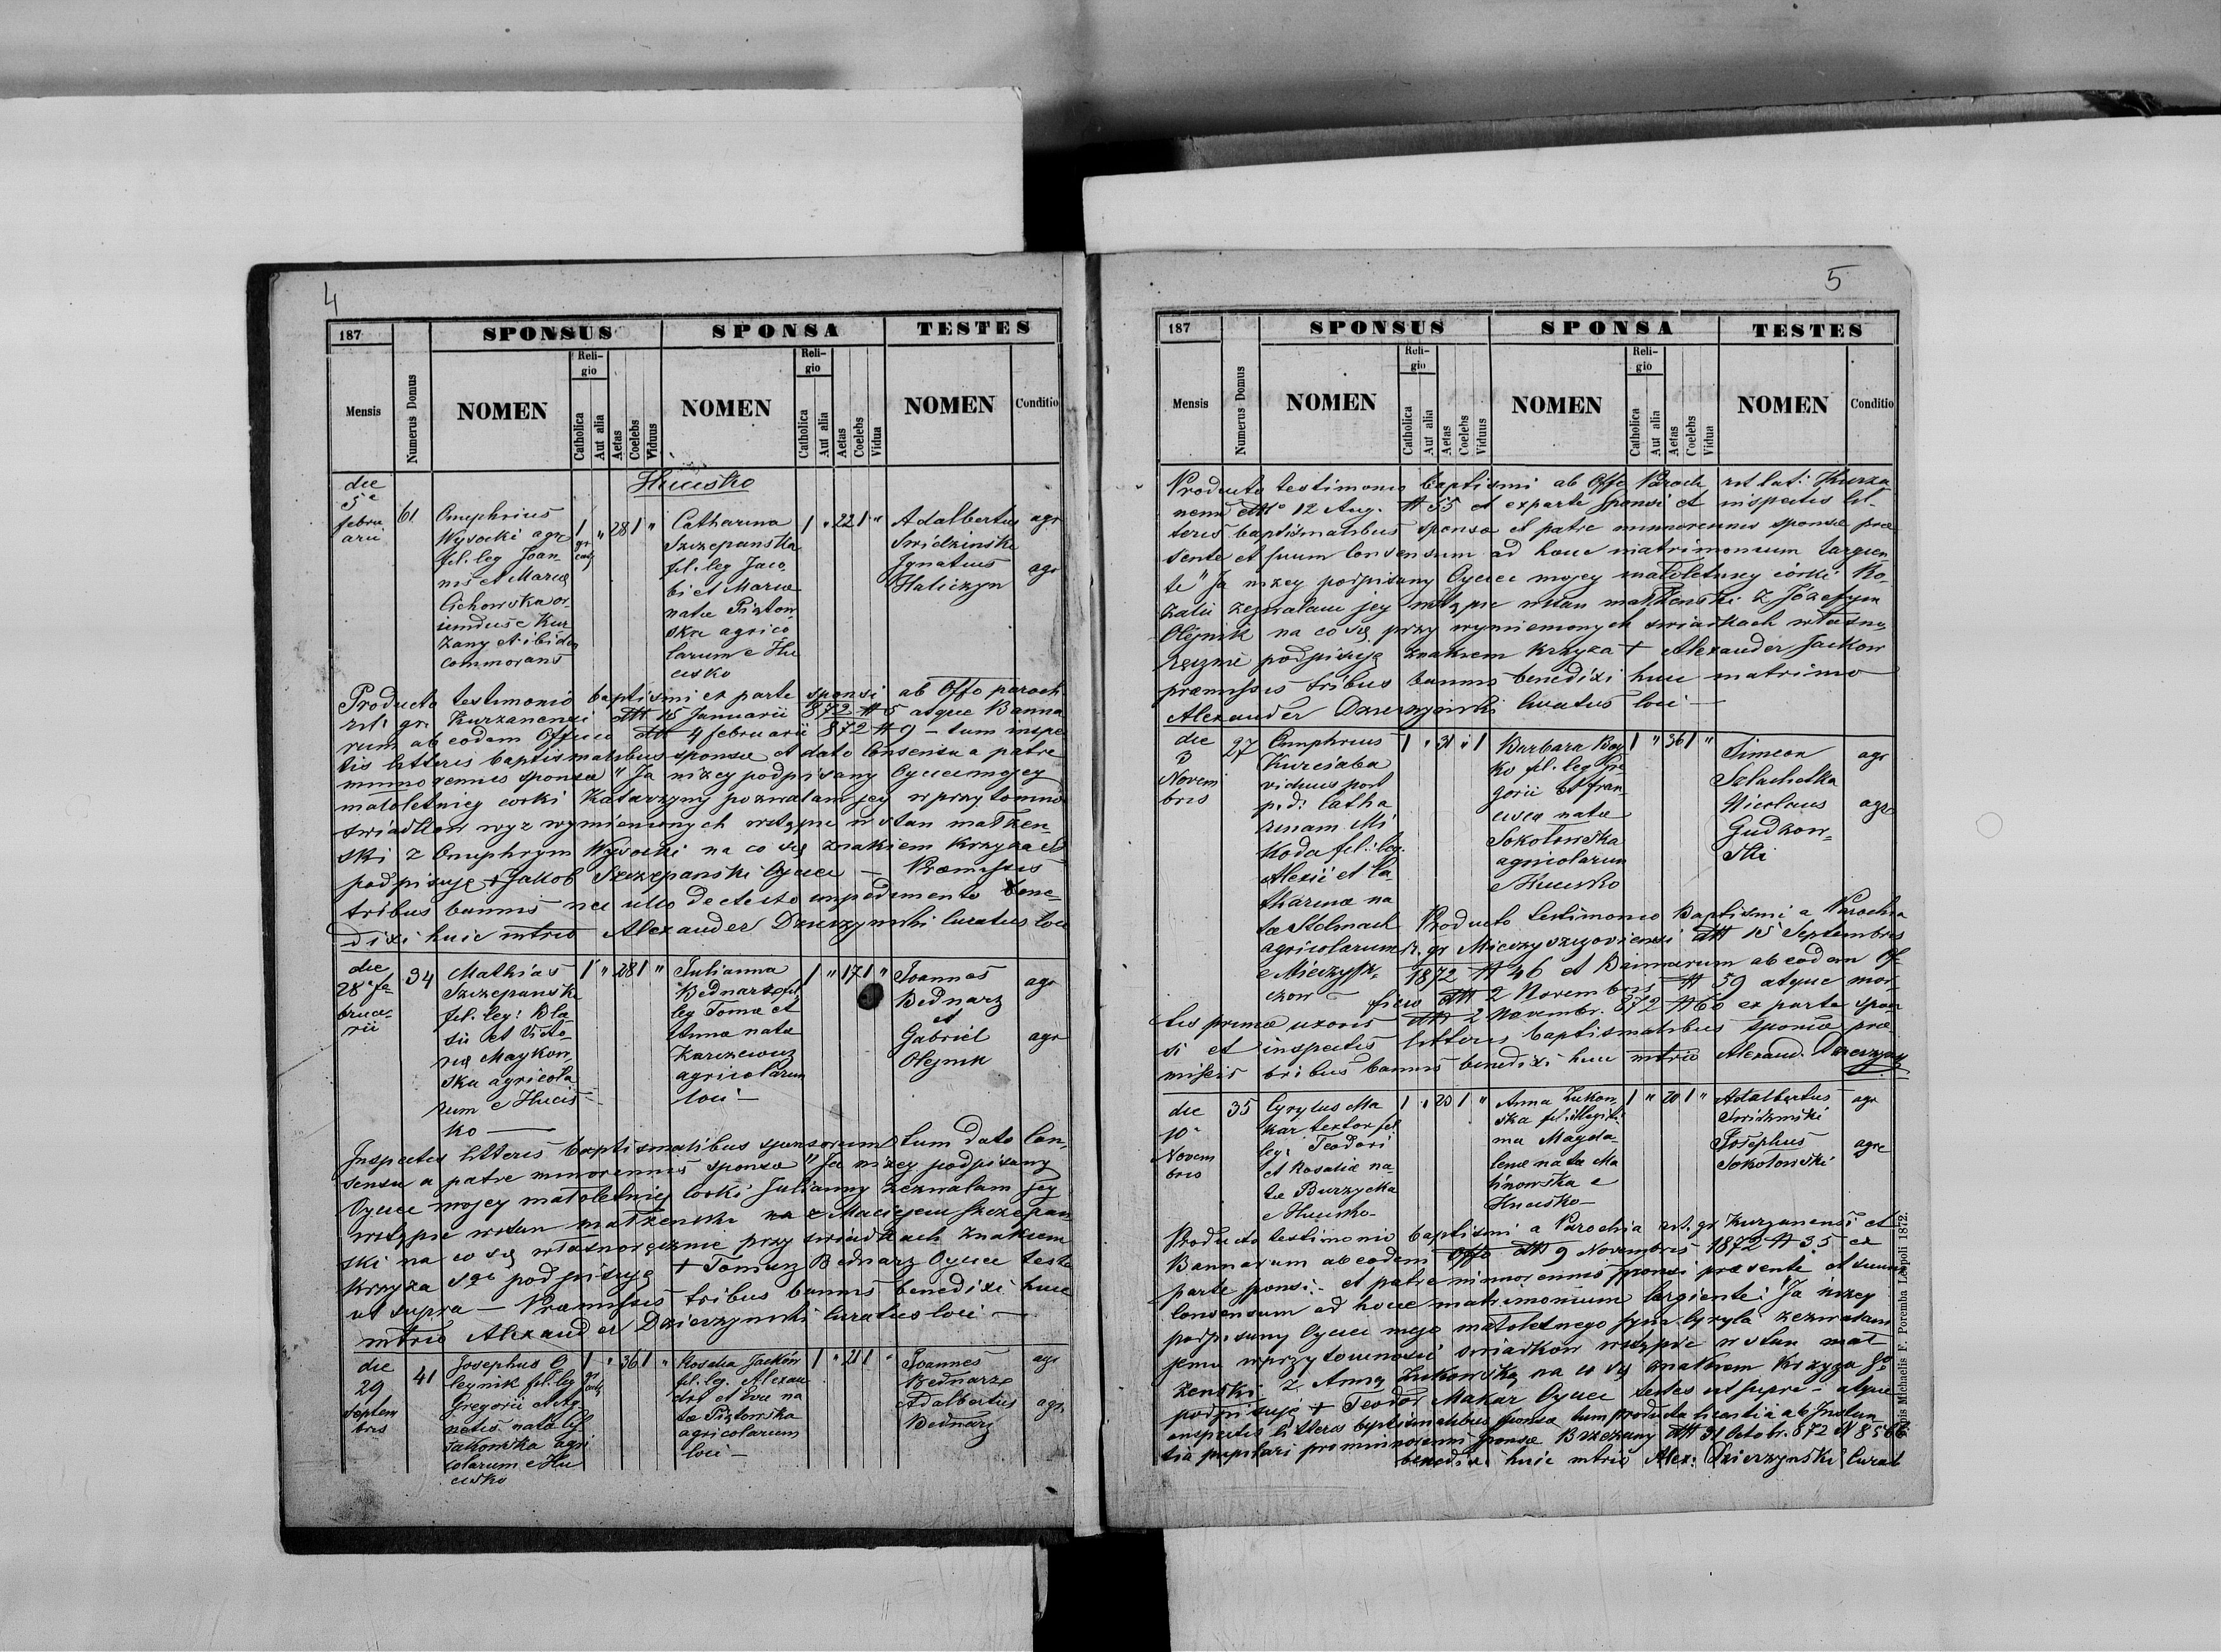 4
187
SPONSUS
SPONSA
TESTES
Mensis
Numerus Domus
NOMEN
Religio
Catholica
Aut alia
Aetas
Coelebs
Viduus
NOMEN
Religio
Catholica
Aut alia
Aetas
Coelebs
Vidua
NOMEN
Conditio
Hucisko
die
5a
febru
arii
61
Onuphrius
Wysocki agr
fil. leg Joan-
nis et Maria
Cichowska or-
iundus e Kur
zany et ibidem
commorans
1
gr
cath
"
28
1
"
Catharina
Szczepanska
fil. leg Jaco
bi et Mariae
natae Piztow
ska agrico
larum e Hu
cisko
1 " 22 1 "
Adalbertus
Swidzinski
Ignatius
Haliczyn
agr
agr
Producto testimonio baptismi ex parte sponsi ab Offo paroch
rit. gr. Kurzanensi dtt 15 Januarii 872 # 5 atque Banna
rum ab eodem Officio dtt 4 februarii 872 # 9 - tum inspe
tis litteris baptismatibus sponsae et dato Consensu a patre
minorennis sponsae "Ja nizey podpisany Oyciec mojey
matoletniey corki Katarzyny pozwalam jey w przytomno
swiadkow wyz wymienionych wstapic w stan matzen-
ski z Onuphrym Wysocki na co sie znakiem Krzyza
podpisuje + Jakob Szczepanski Oyciec - Praemissis
tribus bannis nec ullo detecto impedimento bene-
dixi huic mtrio Alexander Dzierzynski Curatus loci
die
28a fe
brua-
rii
34
Mathias
Szczepanski
fil. leg: Bla
sii et Victo-
ria Maykow-
ska agricola
rum e Hucis-
ko
1 " 28 1 "
Julianna
Bednarz fil
leg Tomae et
Anna nata
Karczewicz
agricolarum
loci -
1 " 17 1 "
Joannes
Bednarz
et
Gabriel
Olejnik
agr
agr
Inspectis litteris baptismatibus sponsorum tum dato Con-
sensu a patre minorennis sponsae "Ja nizey podpisany
Oyciec mojey matoletniey Corki Julianny zezwalam jey
wstapic w stan matzenski z Maciejem Szczepan
ski na co sie wtasnorecznie przy swiadkach znakiem
Krzyza sgo podpisuje + Tomasz Bednarz Oyciec testes
ut supra - Praemissis tribus bannis benedixi huic
mtrio Alexander Dzierzynski Curatus loci -
die
29
Septem
bris
41
Josephus O
lejnik fil. leg
Gregorii et Ag
netis nata
agri
colarum e Hu
cisko
1
gr
cath
"
36
1
"
Rosalia Jackow
fil. leg. Alexan
dri et Evae na
tae Piztowska
agricolarum
loci -
1 " 21 1 "
Joannes
Bednarz
Adalbertus
Bednarz
agr
agr
5
187
SPONSUS
SPONSA
TESTES
Mensis
Numerus Domus
NOMEN
Religio
Catholica
Aut alia
Aetas
Coelebs
Viduus
NOMEN
Religio
Catholica
Aut alia
Aetas
Coelebs
Vidua
NOMEN
Conditio
Producto testimonio baptismi ab Offo Paroch rit. lat: Kurza
nensi dtto 12 Aug. # 55 et ex parte Sponsi et inspectis lit-
teris baptismatibus sponsae et patre minorennis sponsae prae
sente et suum Consensum ad hocce matrimonium largien
te "Ja nizey podpisany Oyciec mojey matoletniey corki Ro-
zalii zezwalam jey wstapic w stan matzenski z Jozefym
Olejnik na co sie przy wymienionych swiadkach wtasno
recznie podpisuje znakiem Krzyza + Alexander Jackow
praemissis tribus bannis benedixi huic matrimo
Alexander Dzierzynski Curatus loci -
die
3
Novem
bris
27
Onuphrius
Kurciaba
viduus post
p. d. Catha
rinam Mi
koda fil: leg.
Alexii et Ca-
tharinae na
tae Stolmach
agricolarum
e Mieczysz-
czow
1 " 31 " 1
Barbara Boy
ko fil. leg Gre-
gorii et fran-
cisca natae
Sokotowska
agricolarum
e Hucisko
1 " 36 1 "
Simeon
Szlachetka
Nicolaus
Gudzow-
ski
agr
agr
Producto testimonio Baptismi a Parochia
r. gr Mieczyszczoviensi dtt 15 Septembris
1872 # 46 et Bannarum ab eodem Of-
ficio dtt 2 Novembris # 59 atque mor-
tis primae uxoris dtt 2 Novembr. 872 # 60 ex parte spon
si et inspectis litteris baptismatibus sponsae prae
missis tribus bannis benedixi huic mtrio Alexand. Dzierzyns
die
10a
Novem
bris
35
Cyrylus Ma
kar textor fil
leg: Teodori
et Rosaliae na-
tae Burzycka
e Hucisko-
1 " 23 1 "
Anna Zukow-
ska fil. illegiti-
ma Magda-
lenae natae Ma
linowska e
Hucisko-
1 " 20 1 "
Adalbertus
Swidzinski
Josephus
Sokotowski
agr
agr
Producto testimonio baptismi a Parochia rit. gr Kurzanensi et
Bannarum ab eodem Offo dtt 9 Novembris 1872 # 35 ex
parte sponsi.- et patre minorennis sponsi praesente et suum
Consensum ad hocce matrimonium largiente: "Ja nizey
podpisany Oyciec mego matoletnego syna Cyryla zezwalam
jemu w przytomnosci swiadkow wstapic w stan mat
zenski z Anna Zukowska na co sie znakiem Krzyza sgo
podpisuje + Teodor Makar Oyciec testes ut supra - atque
inspectis litteris baptismatibus sponsae tum producta licentia ab Instan
tia pupilari pro minorenni sponsa Brzezany dtt 31 Octobr. 872 # 8566
benedixi huic mtrio Alex: Dzierzynski Curat
Typis Michaelis F. Poremba Leopoli 1872.